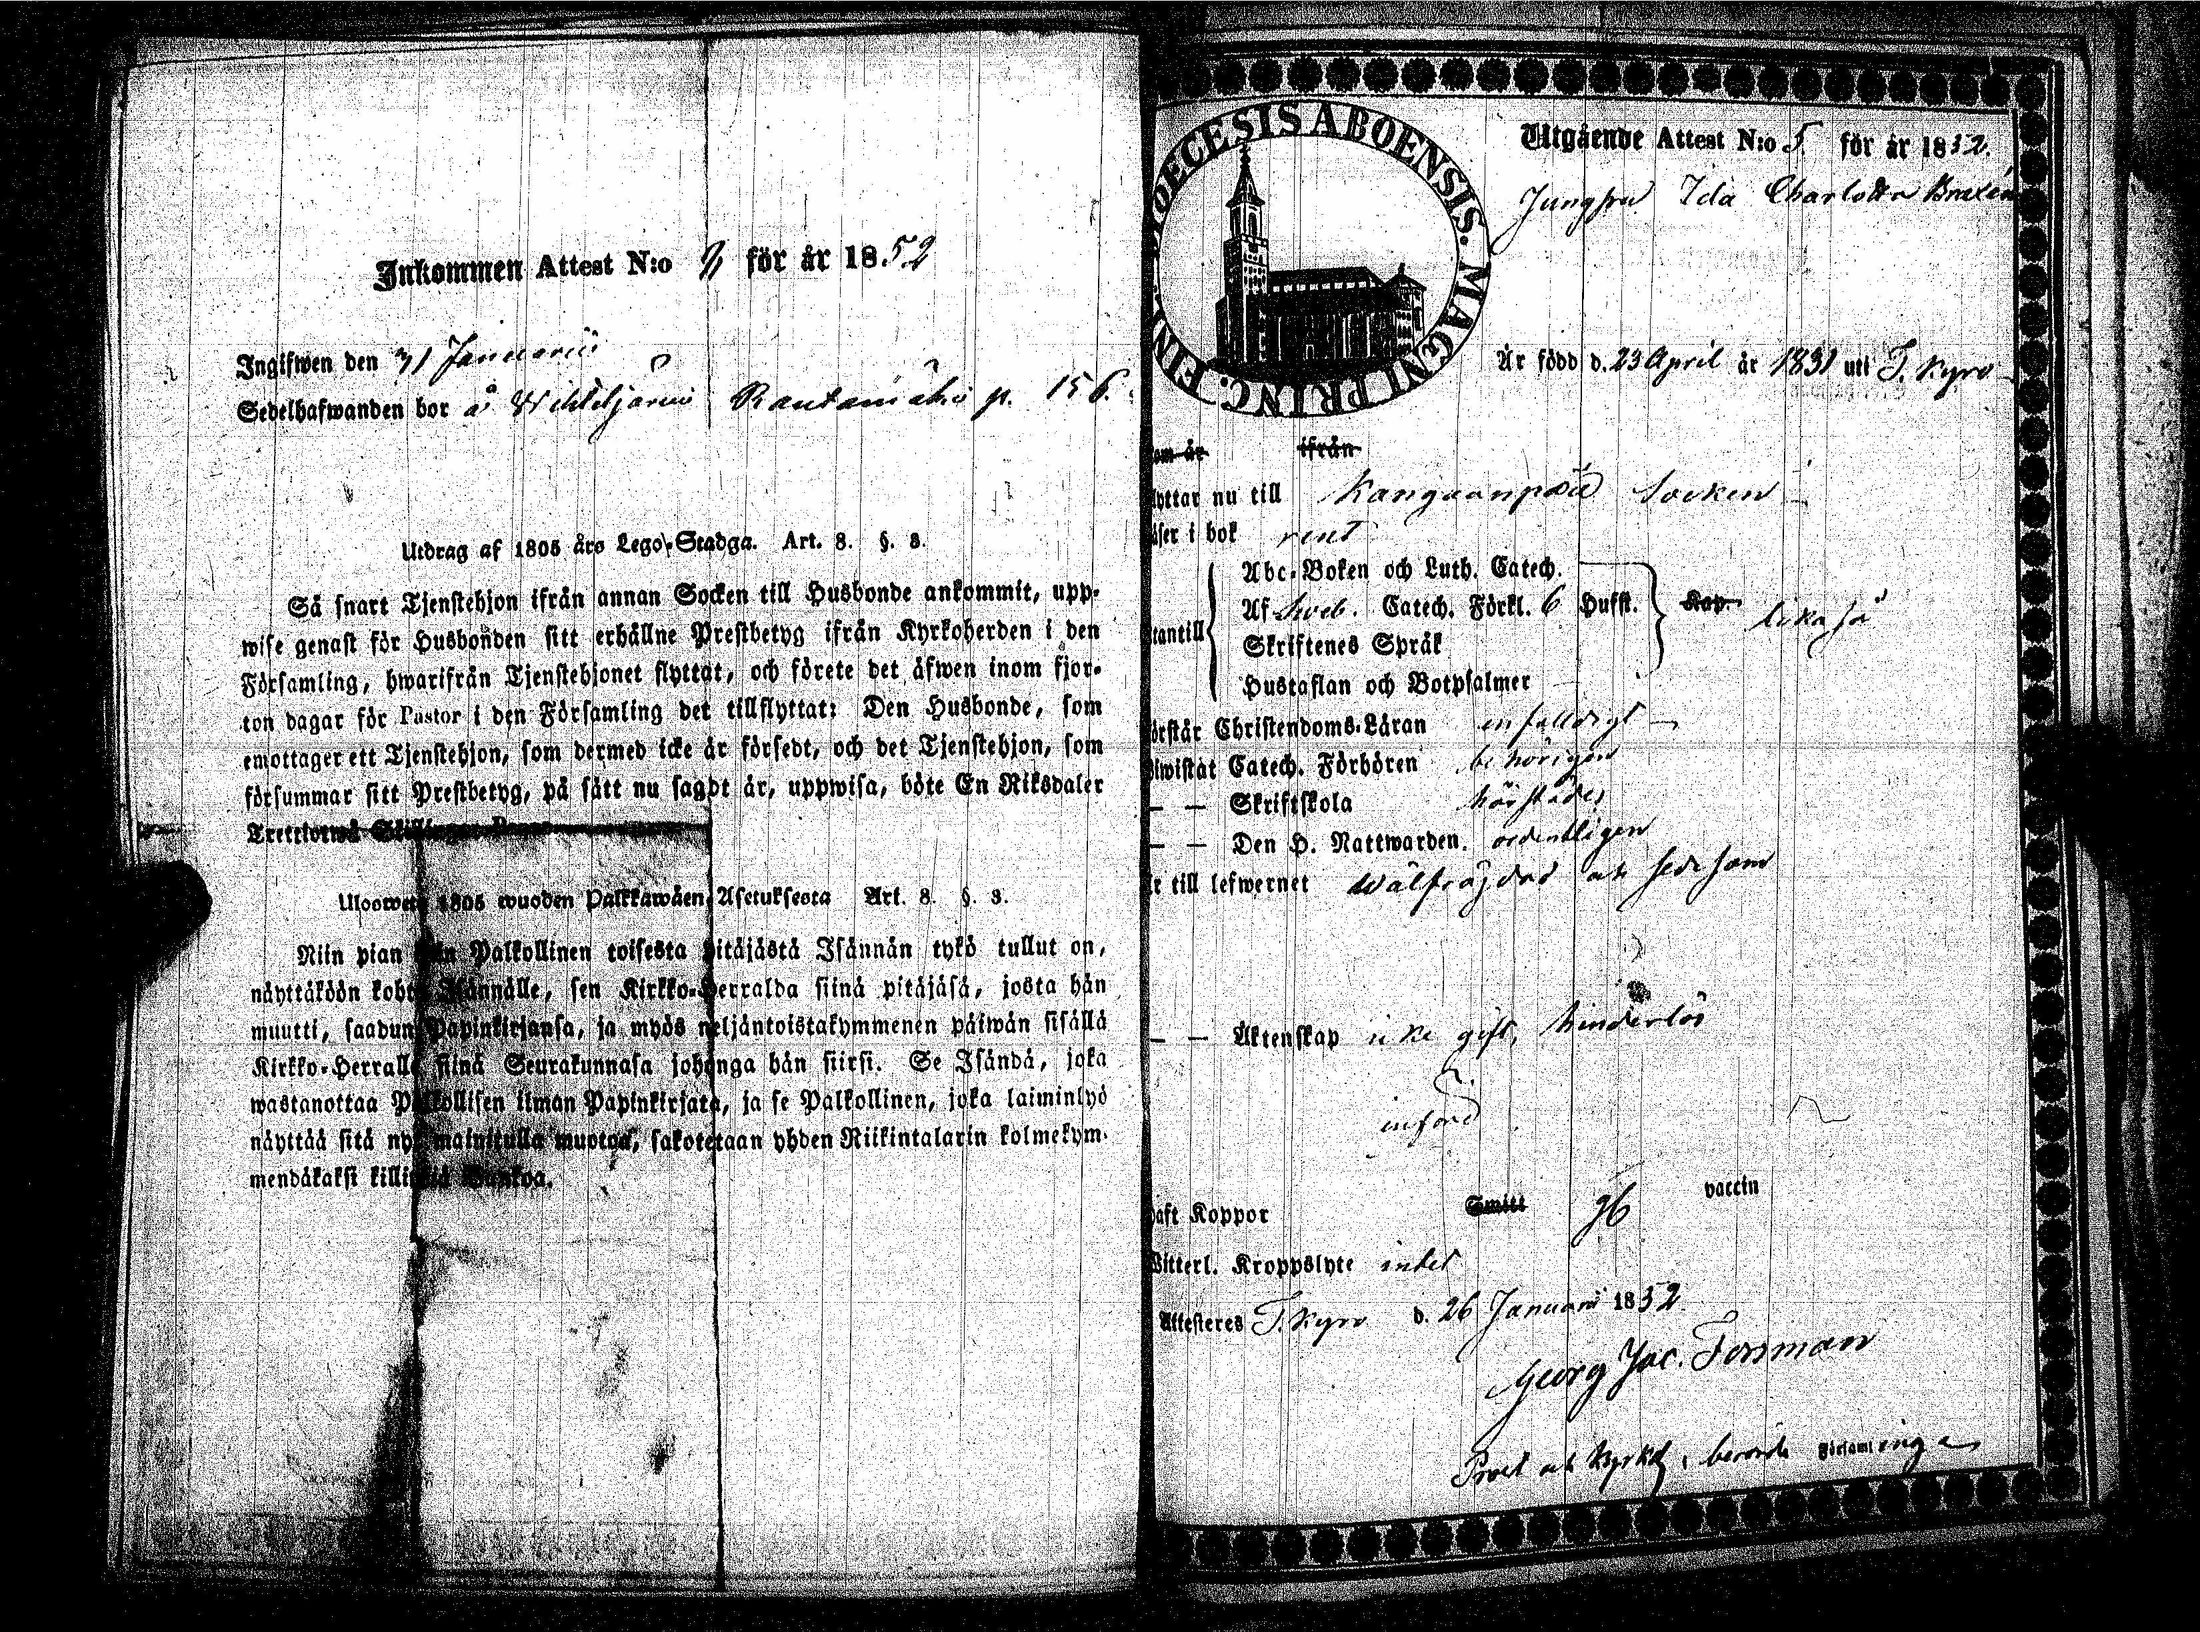 Inkommen Attest N:o för år 1852
Ingifwen den 31 Januarii
Sedelhafwanden bor å Wihteljärwi Rautamäki p. 156.
Utdrag af 1805 års Lego-Stadga. Art. 8. §. 3.
Så snart Tjenstehjon ifrån annan Socken till Husbonde ankommit, upp-
wise genast för Husbonden sitt erhållne Prestbetyg ifrån Kyrkoherden i den
Församling, hwarifrån Tjenstehjonet flyttat, och förete det äfwen inom fjor-
ton dagar för Pastor i den Församling det tillflyttat: Den Husbonde, som
emottager ett Tjenstehjon, som dermed icke är försedt, och det Tjenstehjon, som
försummar sitt Prestbetyg, på sätt nu sagdt är, uppwisa, böte En Riksdaler
Trettiotwå Skillingar Banco
Uloswete 1805 wuoden Palkkawäen Asetuksesta Art. 8. §. 3.
Niin pian kuin Palkollinen toisesta pitäjästä Isännän tykö tullut on,
näyttäköön kohta Isännälle, sen Kirkko-Herralda siinä pitäjäsä, josta hän
muutti, saadun Papinkirjansa, ja myös neljäntoistakymmenen päiwän sisällä
Kirkko-Herralle siinä Seurakunnasa johonga hän siirsi. Se Isändä, joka
wastanottaa Palkollisen ilman Papinkirjata, ja se Palkollinen, joka laiminlyö
näyttää sitä nyt mainitulla muotoa, sakotetaan yhden Riikintalarin kolmekym-
mendäkaksi killingiä Bankoa.
DIOECESIS ABOENSIS. MAGNI PRINC. FINL.
Utgående Attest N:o 5 för år 1852.
Jungfru Ida Charlotta
Är född d. 23 April år 1831 uti T. Kyro
som är ifrån
flyttar nu till Kangaanpää Socken
läser i bok rent
Abc-Boken och Luth. Catech.
utantill Af Sveb. Catech. Förkl. 6 Hufst. Kap. likaså
Skriftenes Språk
Hustaflan och Botpsalmer
förstår Christendoms-Läran enfalldigt
biwistat Catech. Förhören behörigen
— — Skriftskola härstädes
— — Den H. Nattwarden. ordentligen
är till lefwernet wälfrägdad och sedesam
— — Äktenskap icke gift, hinderlös
införd
haft Koppor Smitt gb vaccin
Witterl. Kroppslyte intet
Attesteres T. Kyro d. 26 Januari 1852.
Georg Jac. Forsman
Prost och Kyrkh. berörde Församlinga